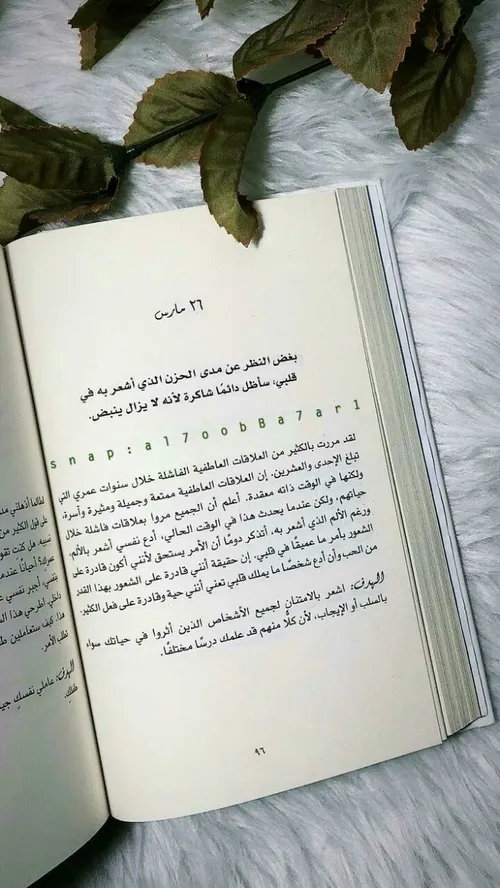 ٢٦ مارس
بغض النظر عن مدى الحزن الذي أشعر به في
قلبي، سأظل دائمًا شاكرة لأنه لا يزال ينبض.
snap:al7oob8a7arl
لقد مررت بالكثير من العلاقات العاطفية الفاشلة خلال سنوات عمري التي
تبلغ الإحدى والعشرين. إن العلاقات العاطفية ممتعة وجميلة ومثيرة وآسرة،
ولكنها في الوقت ذاته معقدة. أعلم أن الجميع مروا بعلاقات فاشلة خلال
حياتهم، ولكن عندما يحدث هذا في الوقت الحالي، أدع نفسي أشعر بالألم.
ورغم الألم الذي أشعر به، أتذكر دومًا أن الأمر يستحق لأنني أكون قادرة على
الشعور بأمر ما عميقًا في قلبي. إن حقيقة أنني قادرة على الشعور بهذا القدر
من الحب وأن أدع شخصًا ما يملك قلبي تعني أنني حية وقادرة على فعل الكثير.
الهدف: اشعر بالامتنان لجميع الأشخاص الذين أثروا في حياتك سواء
بالسلب أو الإيجاب، لأن كلًا منهم قد علمك درسًا مختلفًا.
٩٦
لطالما أذهلني
على قول الكثير من
هل كنت
أحيانًا عندما
نفسي، أجبر نفسي
داخلي. اطرحي هذا
هذا. كيف ستعاملين
تطلب الأمر.
الهدف: عاملي نفسك